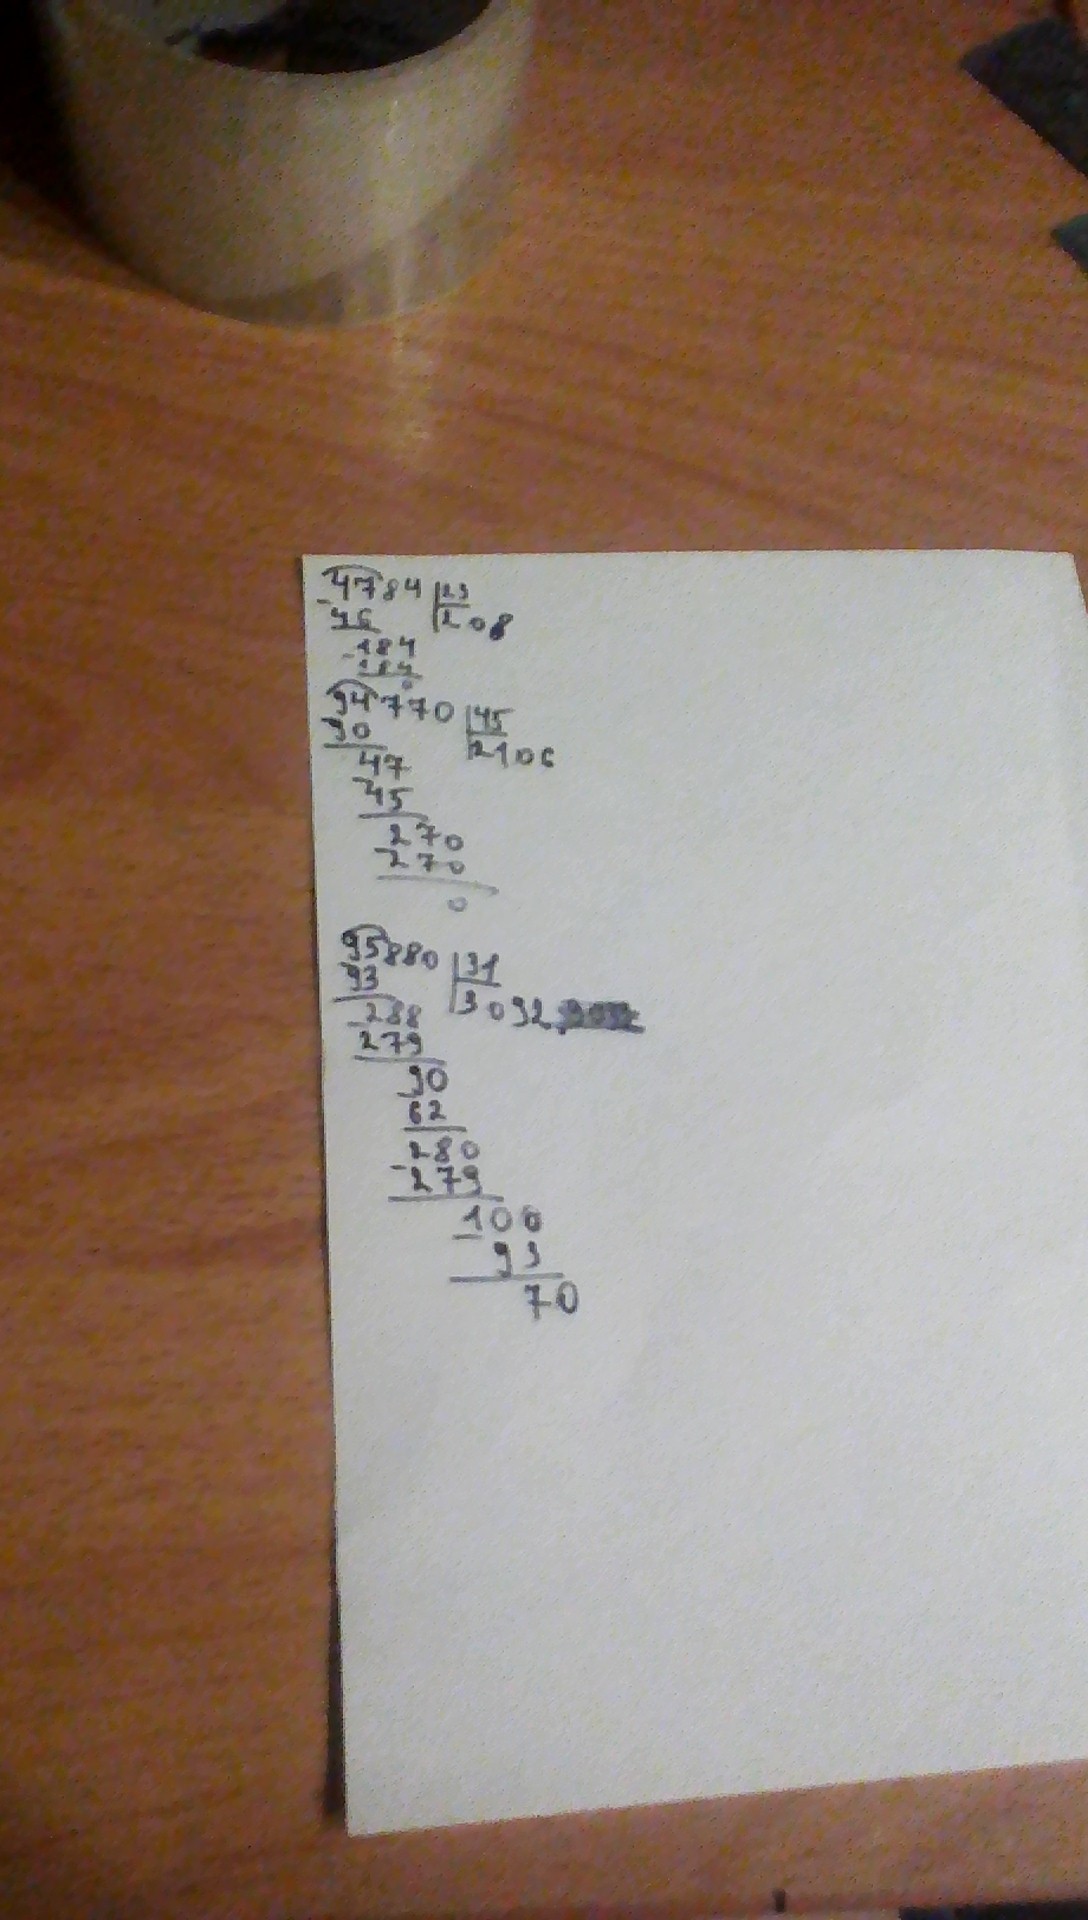 4784 23
-46 208
-184
184
0
94770 45
90 2106
47
45
270
270
0
95880 31
93 3092
288
279
90
62
280
-279
100
93
70